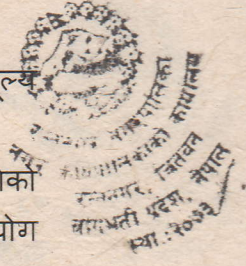 ूल्य
रत्ननगर नगरपालिका
नगर कार्यपालिकाको कार्यालय
रत्ननगर, चितवन
बागमती प्रदेश, नेपाल
स्था.:२०५३
ेको
योग